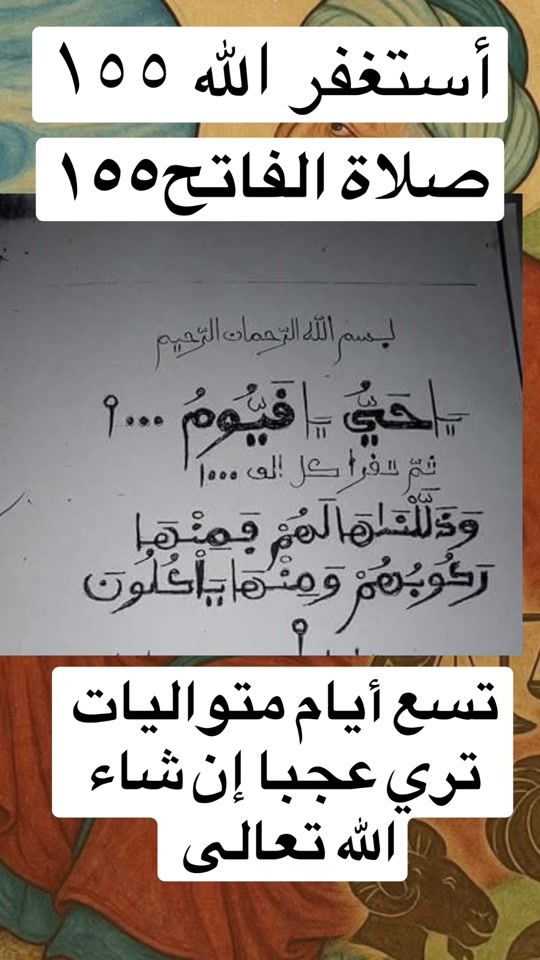 أستغفر الله ١٥٥
صلاة الفاتح١٥٥
بسم الله الرحمان الرحيم
يا حَيُّ يا قَيُّومُ ٩٠٠٠
ثمّ تقرا كل الف ١٠٠٠
وَذَلَّلْنَاهَا لَهُمْ فَمِنْهَا
رَكُوبُهُمْ وَمِنْهَا يَاْكُلُونَ
تسع أيام متواليات
تري عجبا إن شاء
الله تعالى